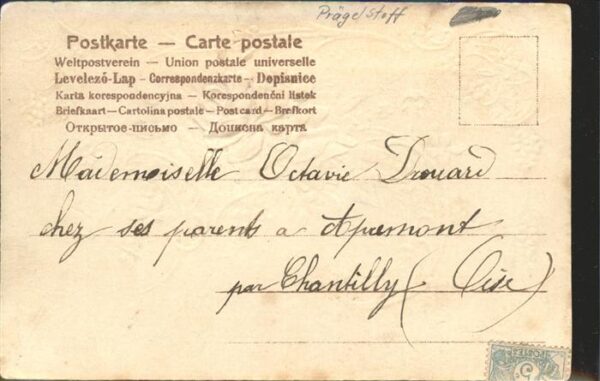 Prägestoff
Postkarte — Carte postale
Weltpostverein — Union postale universelle
Levelező-Lap - Correspondenzkarte - Dopisnice
Karta korespondencyjna — Korespondenční listek
Briefkaart — Cartolina postale — Post card — Brefkort
Открытое письмо — Дописна карта
Mademoiselle Octavie Drouard
chez ses parents a Apremont
par Chantilly (Oise)
POSTES
5